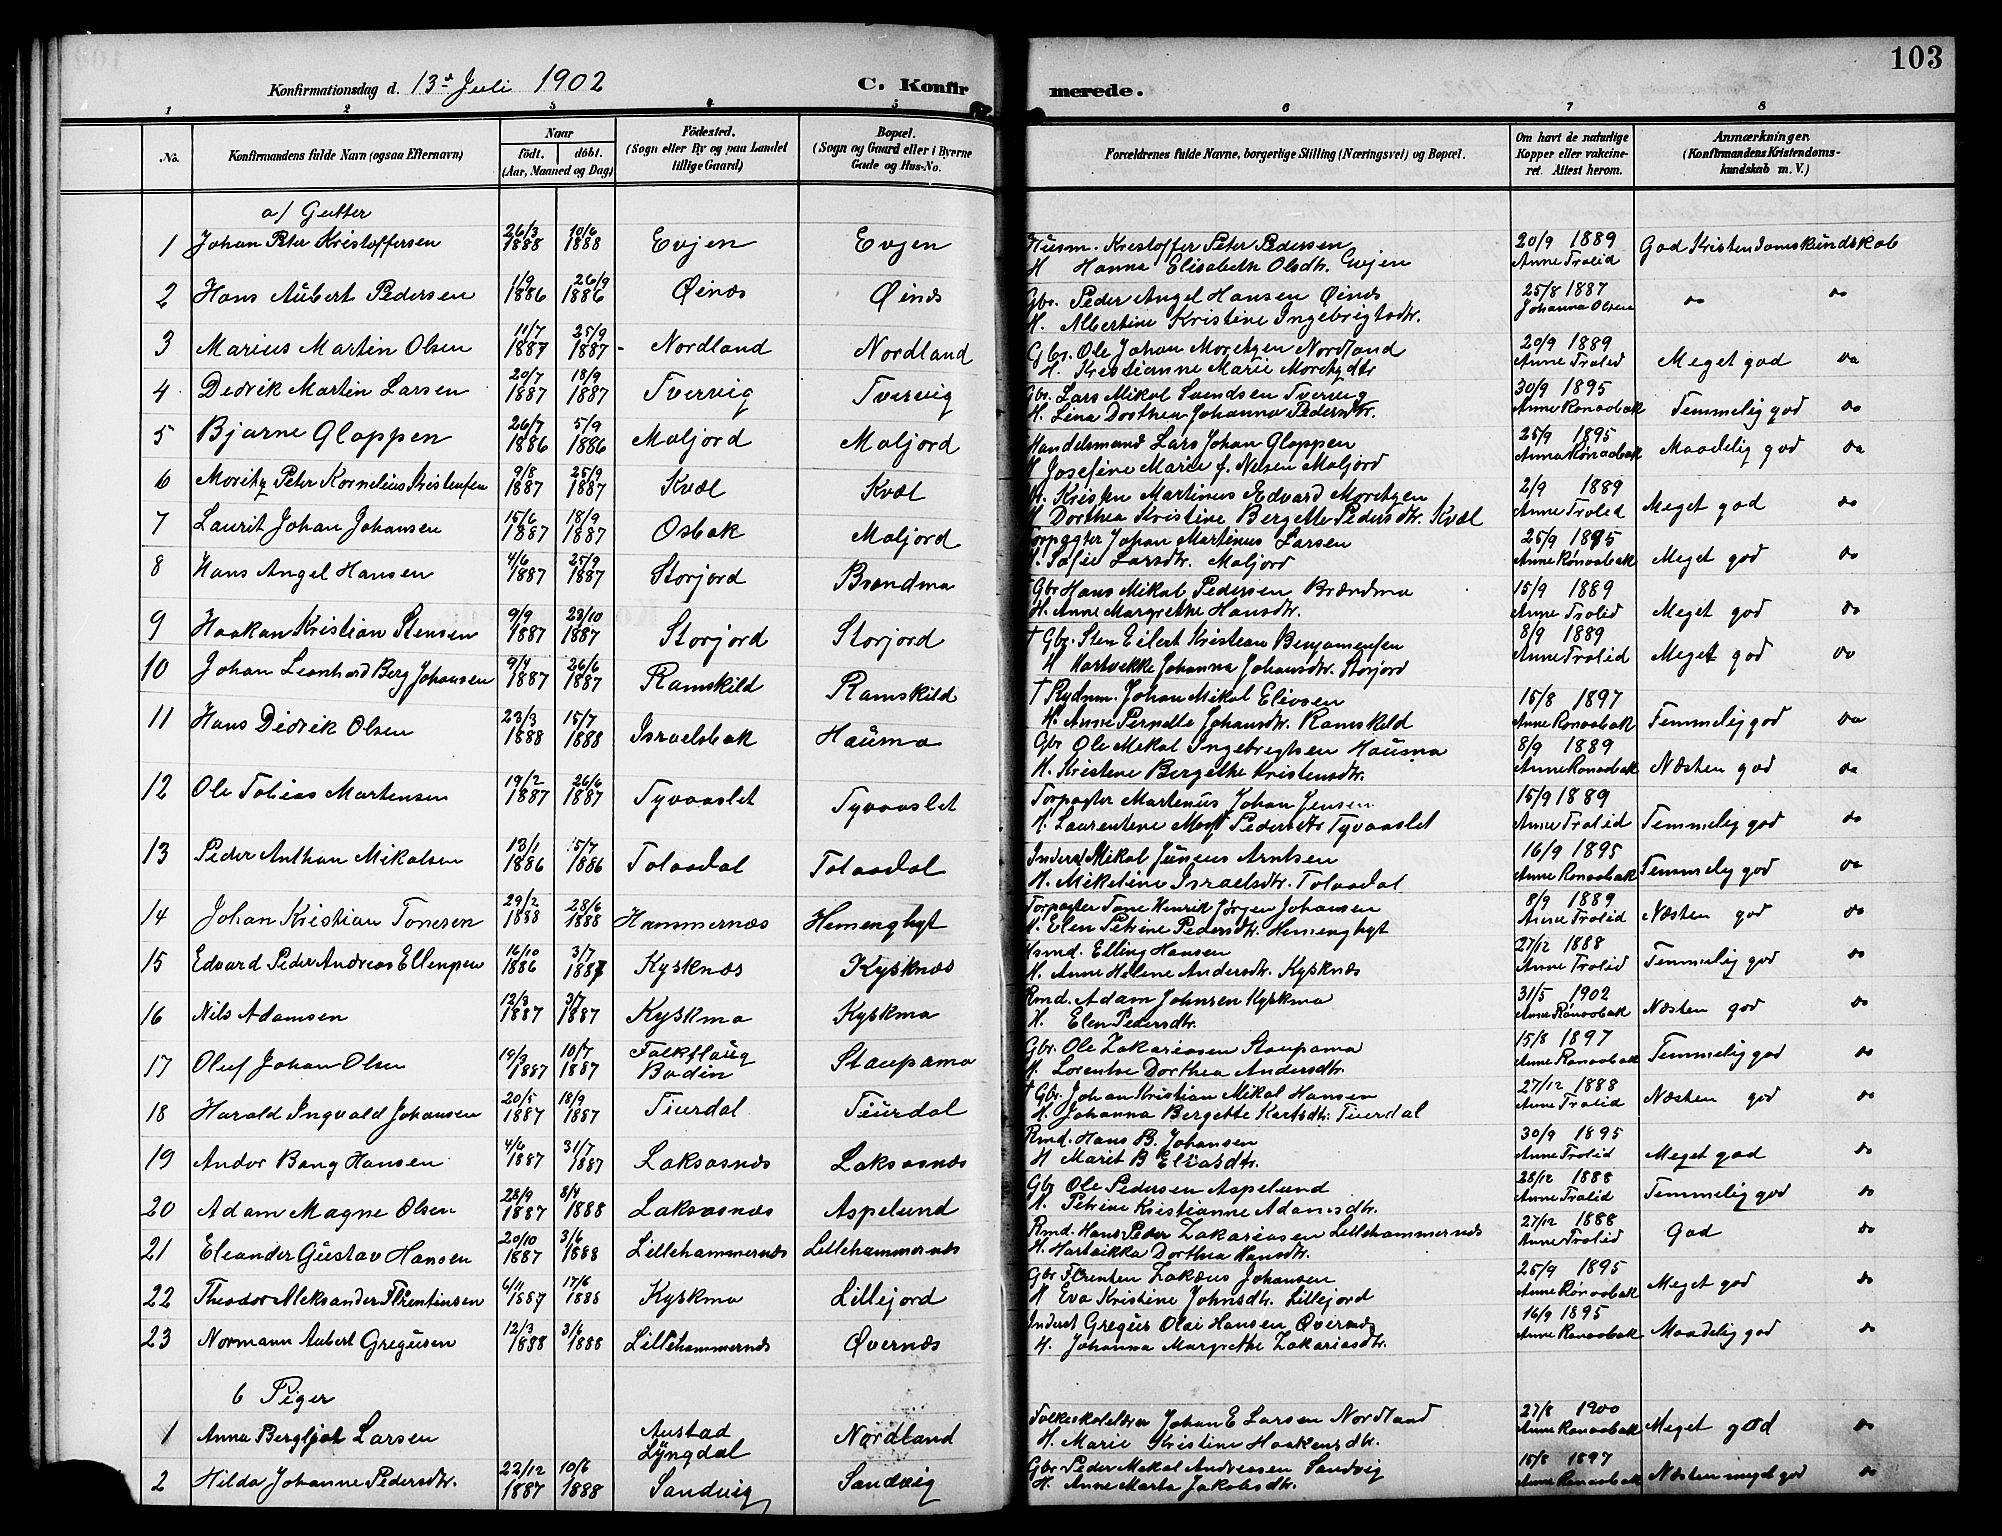 103
Konfirmationsdag d. 13de Juli 1902 C. Konfirmerede.
1 2 3 4 5 6 7 8
No. Konfirmandens fulde Navn (ogsaa Efternavn) Naar født. døbt. (Aar, Maaned og Dag) Fødested. (Sogn eller By og paa Landet tillige Gaard) Bopæl. (Sogn og Gaard eller i Byerne Gade og Hus-No. Forældrenes fulde Navne, borgerlige Stilling (Næringsvei) og Bopæl. Om havt de naturlige Kopper eller vakcineret. Attest herom. Anmærkninger. (Konfirmandens Kristendomskundskab m. V.)
a/ Gutter
1 Johan Peter Kristoffersen 26/3 1888 10/6 1888 Evjen Evjen Husm. Kristoffer Peter Pedersen H Hanna Elisabeth Olsdtr. Evjen 20/9 1889 Anne Trolid God Kristendomskundskab
2 Hans Aubert Pedersen 1/9 1886 26/9 1886 Øinæs Øinæs Gbr. Peder Angel Hansen Øinæs H. Albertine Kristine Ingebrigtsdtr. 25/8 1887 Johanna Olsen do do
3 Marius Martin Olsen 11/7 1887 25/9 1887 Nordland Nordland Gbr. Ole Johan Moritzen Nordland H. Kristianne Marie Moritzdtr 20/9 1889 Anne Trolid Meget god do
4 Dedrik Martin Larsen 20/7 1887 18/9 1887 Tvervig Tvervig Gbr. Lars Mikal Svendsen Tvervig H. Lina Dorthea Johanna Pedersdtr. 30/9 1895 Anne Rønaabak Temmelig god do
5 Bjarne Gloppen 26/7 1886 5/9 1886 Maljord Maljord Handelsmand Lars Johan Gloppen H Josefine Marie f. Nilsen Maljord 25/9 1895 Anna Rønaabak Maadelig god do
6 Moritz Peter Kornelius Kristensen 9/8 1887 25/9 1887 Kvæl Kvæl Kristen Martinus Edvard Moritzen H Dorthea Kristine Bergitte Pedersdtr. Kvæl 2/9 1889 Anne Trolid Meget god do
7 Laurit Johan Johansen 15/6 1887 18/9 1887 Osbak Maljord Forpagter Johan Martinus Larsen H. Sofie Larsdtr. Maljord 25/9 1895 Anne Rønaabak Meget god do
8 Hans Angel Hansen 4/6 1887 25/9 1887 Storjord Brændmo Gbr Hans Mikal Pedersen Brændmo H. Anne Margrethe Hansdtr. 15/9 1889 Anne Trolid Meget god do
9 Haakan Kristian Stensen 9/9 1887 23/10 1887 Storjord Storjord † Gbr. Sten Eilert Kristian Benjaminsen H Hartvekke Johanna Johansdtr. Storjord 8/9 1889 Anne Trolid Meget god do
10 Johan Leonhard Berg Johansen 9/4 1887 26/6 1887 Ramskild Ramskild † Rydnm. Johan Mikal Eliasen H. Anne Pernella Johansdtr. Ramskild 15/8 1897 Anne Rønaabak Temmelig god do
11 Hans Didrik Olsen 23/3 1888 15/7 1888 Israelsbak Hausmo Gbr Ole Mikal Ingebrigtsen Hausmo H. Kristine Bergethe Kristensdtr. 8/9 1889 Anne Rønaabak Næsten god do
12 Ole Tobias Martensen 19/2 1887 26/6 1887 Tyvaaslet Tyvaaslet Forpagter Martenus Johan Jensen H. Laurentine Pedersdtr Tyvaaslet 15/9 1889 Anne Trolid Temmelig god do
13 Peder Anthon Mikalsen 13/1 1886 5/7 1886 Tolaadal Tolaadal Inderst Mikal Junius Arntsen H. Mikeline Israelsdtr. Tolaadal 16/9 1895 Anne Rønaabak Temmelig god do
14 Johan Kristian Tonesen 29/2 1888 28/6 1888 Hammernæs Hemenghyt Forpagter Tone Henrik Jørgen Johansen H. Elen Petrine Pedersdtr. Hemenghyt 8/9 1889 Anne Trolid Næsten god do
15 Edvard Peder Andreas Ellingsen 16/10 1886 3/7 1887 Kysknæs Kysknæs Husmd. Elling Hansen H. Anne Helene Andersdtr. Kysknæs 27/12 1888 Anne Trolid Temmelig god do
16 Nils Adamsen 12/3 1887 3/7 1887 Kyskmo Kyskmo Rmd. Adam Johnsen Kyskmo H. Elen Pedersdtr. 31/5 1902 Anne Rønaabak Næsten god do
17 Oluf Johan Olsen 19/3 1887 10/7 1887 Falkflaug Bodin Staupamo Gbr. Ole Zakariasen Staupamo H. Lorentse Dorthea Andersdtr. 15/8 1897 Anne Rønaabak Temmelig god do
18 Harald Ingvald Johansen 20/5 1887 18/9 1887 Tiurdal Tiurdal † Gbr. Johan Kristian Mikal Hansen H. Johanna Bergette Karlsdtr. Tiurdal 27/12 1888 Anne Trolid Næsten god do
19 Andor Bang Hansen 4/6 1887 31/7 1887 Laksaasnæs Laksaasnæs Rmd. Hans B. Johansen H Marit B Eliasdtr. 30/9 1895 Anne Trolid Meget god do
20 Adam Magne Olsen 28/9 1887 8/4 1888 Laksaasnæs Aspelund Gbr Ole Pedersen Aspelund H. Petrine Kristianne Adamsdtr. 28/12 1888 Anne Trolid Temmelig god do
21 Eleander Gustav Hansen 20/10 1887 3/6 1888 Lillehammernæs Lillehammernæs Rmd. Hans Peder Zakariasen Lillehammernæs H. Hartvikka Dorthea Hansdtr. 27/12 1888 Anne Trolid God do
22 Theodor Aleksander Florentinsen 6/11 1887 17/6 1888 Kyskmo Lillejord Gbr Florenten Zakæus Johansen H Eva Kristine Johnsdtr. Lillejord 25/9 1895 Anne Rønaabak Meget god do
23 Normann Aubert Gregusen 12/3 1888 3/6 1888 Lillehammernæs Øvernæs Inderst Gregus Olai Hansen Øvernæs H. Johanna Margrethe Zakariasdtr. 16/9 1895 Anne Rønaabak Maadelig god do
b Piger
1 Anna Bergljot Larsen Austad Lyngdal Nordland Folkeskolelærer Johan E Larsen Nordland H. Marie Kristine Haakensdtr. 27/8 1900 Anne Rønaabak Meget god do
2 Hilda Johanne Pedersdtr. 22/12 1887 10/6 1888 Sandvig Sandvig Gbr Peder Mikal Andreasen Sandvig H. Anne Marta Jakobsdtr. 15/8 1897 Anne Rønaabak Næsten meget god do